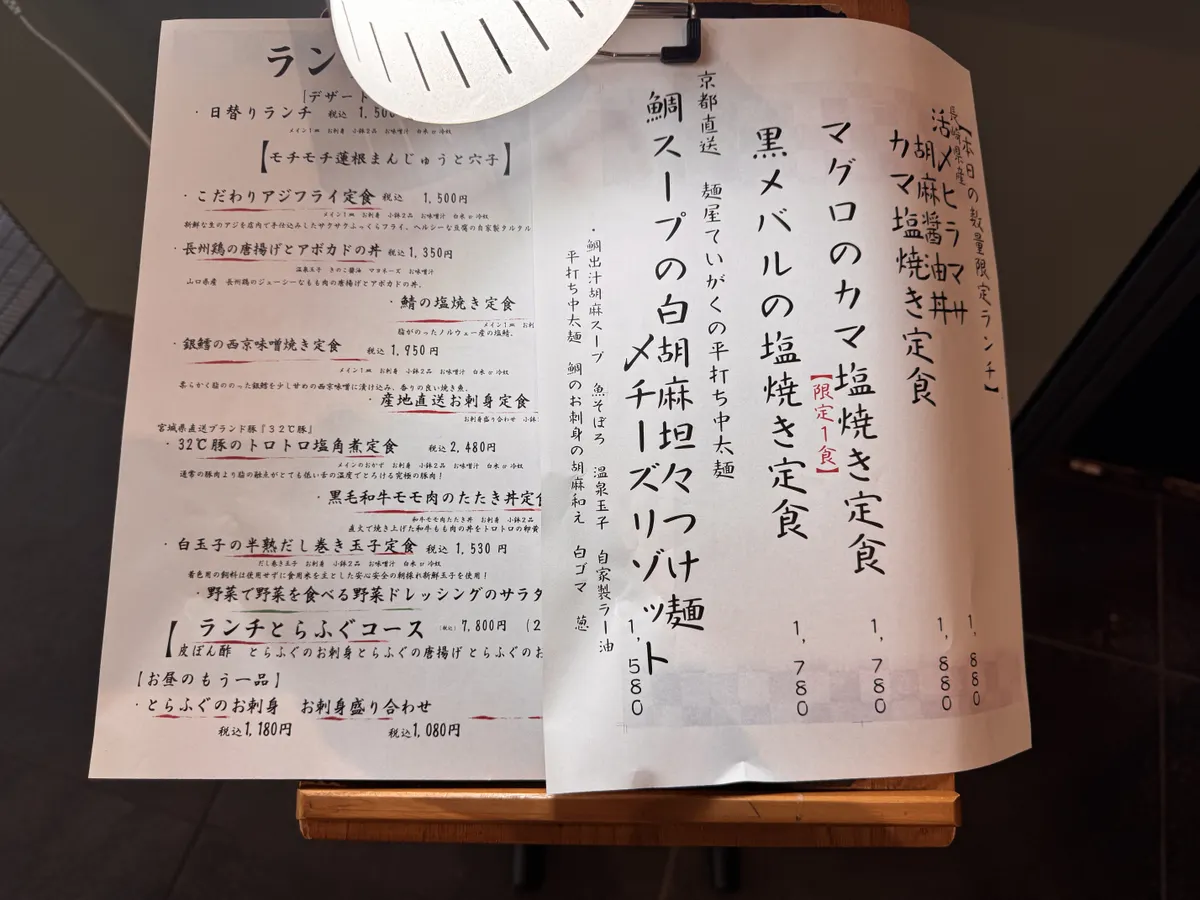 ラン
【デザート
・日替りランチ 税込 1,500
メイン1皿 お刺身 小鉢2品 お味噌汁 白米or冷奴
【モチモチ蓮根まんじゅうと穴子】
・こだわりアジフライ定食 税込 1,500円
メイン1皿 お刺身 小鉢2品 お味噌汁 白米or冷奴
新鮮な生のアジを店内で手仕込みしたサクサクふっくらフライ、ヘルシーな豆腐の自家製タルタル
・長州鶏の唐揚げとアボカドの丼 税込1,350円
温泉玉子 きのこ醤油 マヨネーズ お味噌汁
山口県産 長州鶏のジューシーなもも肉の唐揚げとアボカドの丼。
・鯖の塩焼き定食
メイン1皿 お刺
脂がのったノルウェー産の塩鯖。
・銀鱈の西京味噌焼き定食 税込 1,950円
メイン1皿 お刺身 小鉢2品 お味噌汁 白米or冷奴
柔らかく脂ののった銀鱈を少し甘めの西京味噌に漬け込み、香りの良い焼き魚。
・産地直送お刺身定食
お刺身盛り合わせ 小鉢
宮城県直送ブランド豚『32℃豚』
・32℃豚のトロトロ塩角煮定食 税込2,480円
メインのおかず お刺身 小鉢2品 お味噌汁 白米or冷奴
通常の豚肉より脂の融点がとても低い舌の温度でとろける究極の豚肉！
・黒毛和牛モモ肉のたたき丼定食
和牛モモ肉たたき丼 お刺身 小鉢2品
直火で焼き上げた和牛もも肉の丼をトロトロの卵黄
・白玉子の半熟だし巻き玉子定食 税込 1,530円
だし巻き玉子 お刺身 小鉢2品 お味噌汁 白米or冷奴
着色用の飼料は使用せずに食用米を主とした安心安全の朝採れ新鮮玉子を使用！
・野菜で野菜を食べる野菜ドレッシングのサラダ
【ランチとらふぐコース (税込) 7,800円 (2
皮ぽん酢 とらふぐのお刺身とらふぐの唐揚げとらふぐのお
【お昼のもう一品】
・とらふぐのお刺身 お刺身盛り合わせ
税込1,180円 税込1,080円
【本日の数量限定ランチ】
長崎県産
活〆ヒラマサ
胡麻醤油丼 1,880
カマ塩焼き定食 1,880
マグロのカマ塩焼き定食 1,780
【限定1食】
黒メバルの塩焼き定食 1,780
京都直送 麺屋ていがくの平打ち中太麺
鯛スープの白胡麻坦々つけ麺
〆チーズリゾット 1,580
・鯛出汁胡麻スープ 魚そぼろ 温泉玉子 自家製ラー油
平打ち中太麺 鯛のお刺身の胡麻和え 白ゴマ 葱